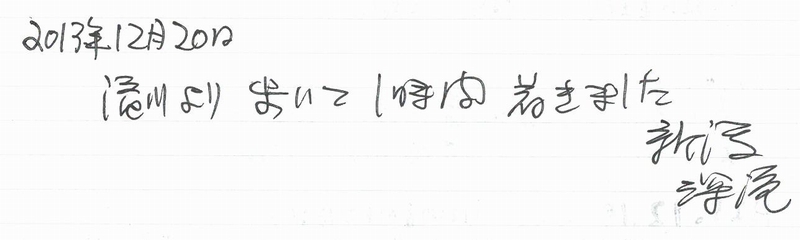 2013年12月20日
滝川より 歩いて 1時間 着きました
新潟
深滝